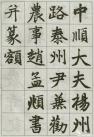 中順大夫揚州
路泰州尹蕭勸
農事趙孟頫書
并篆額